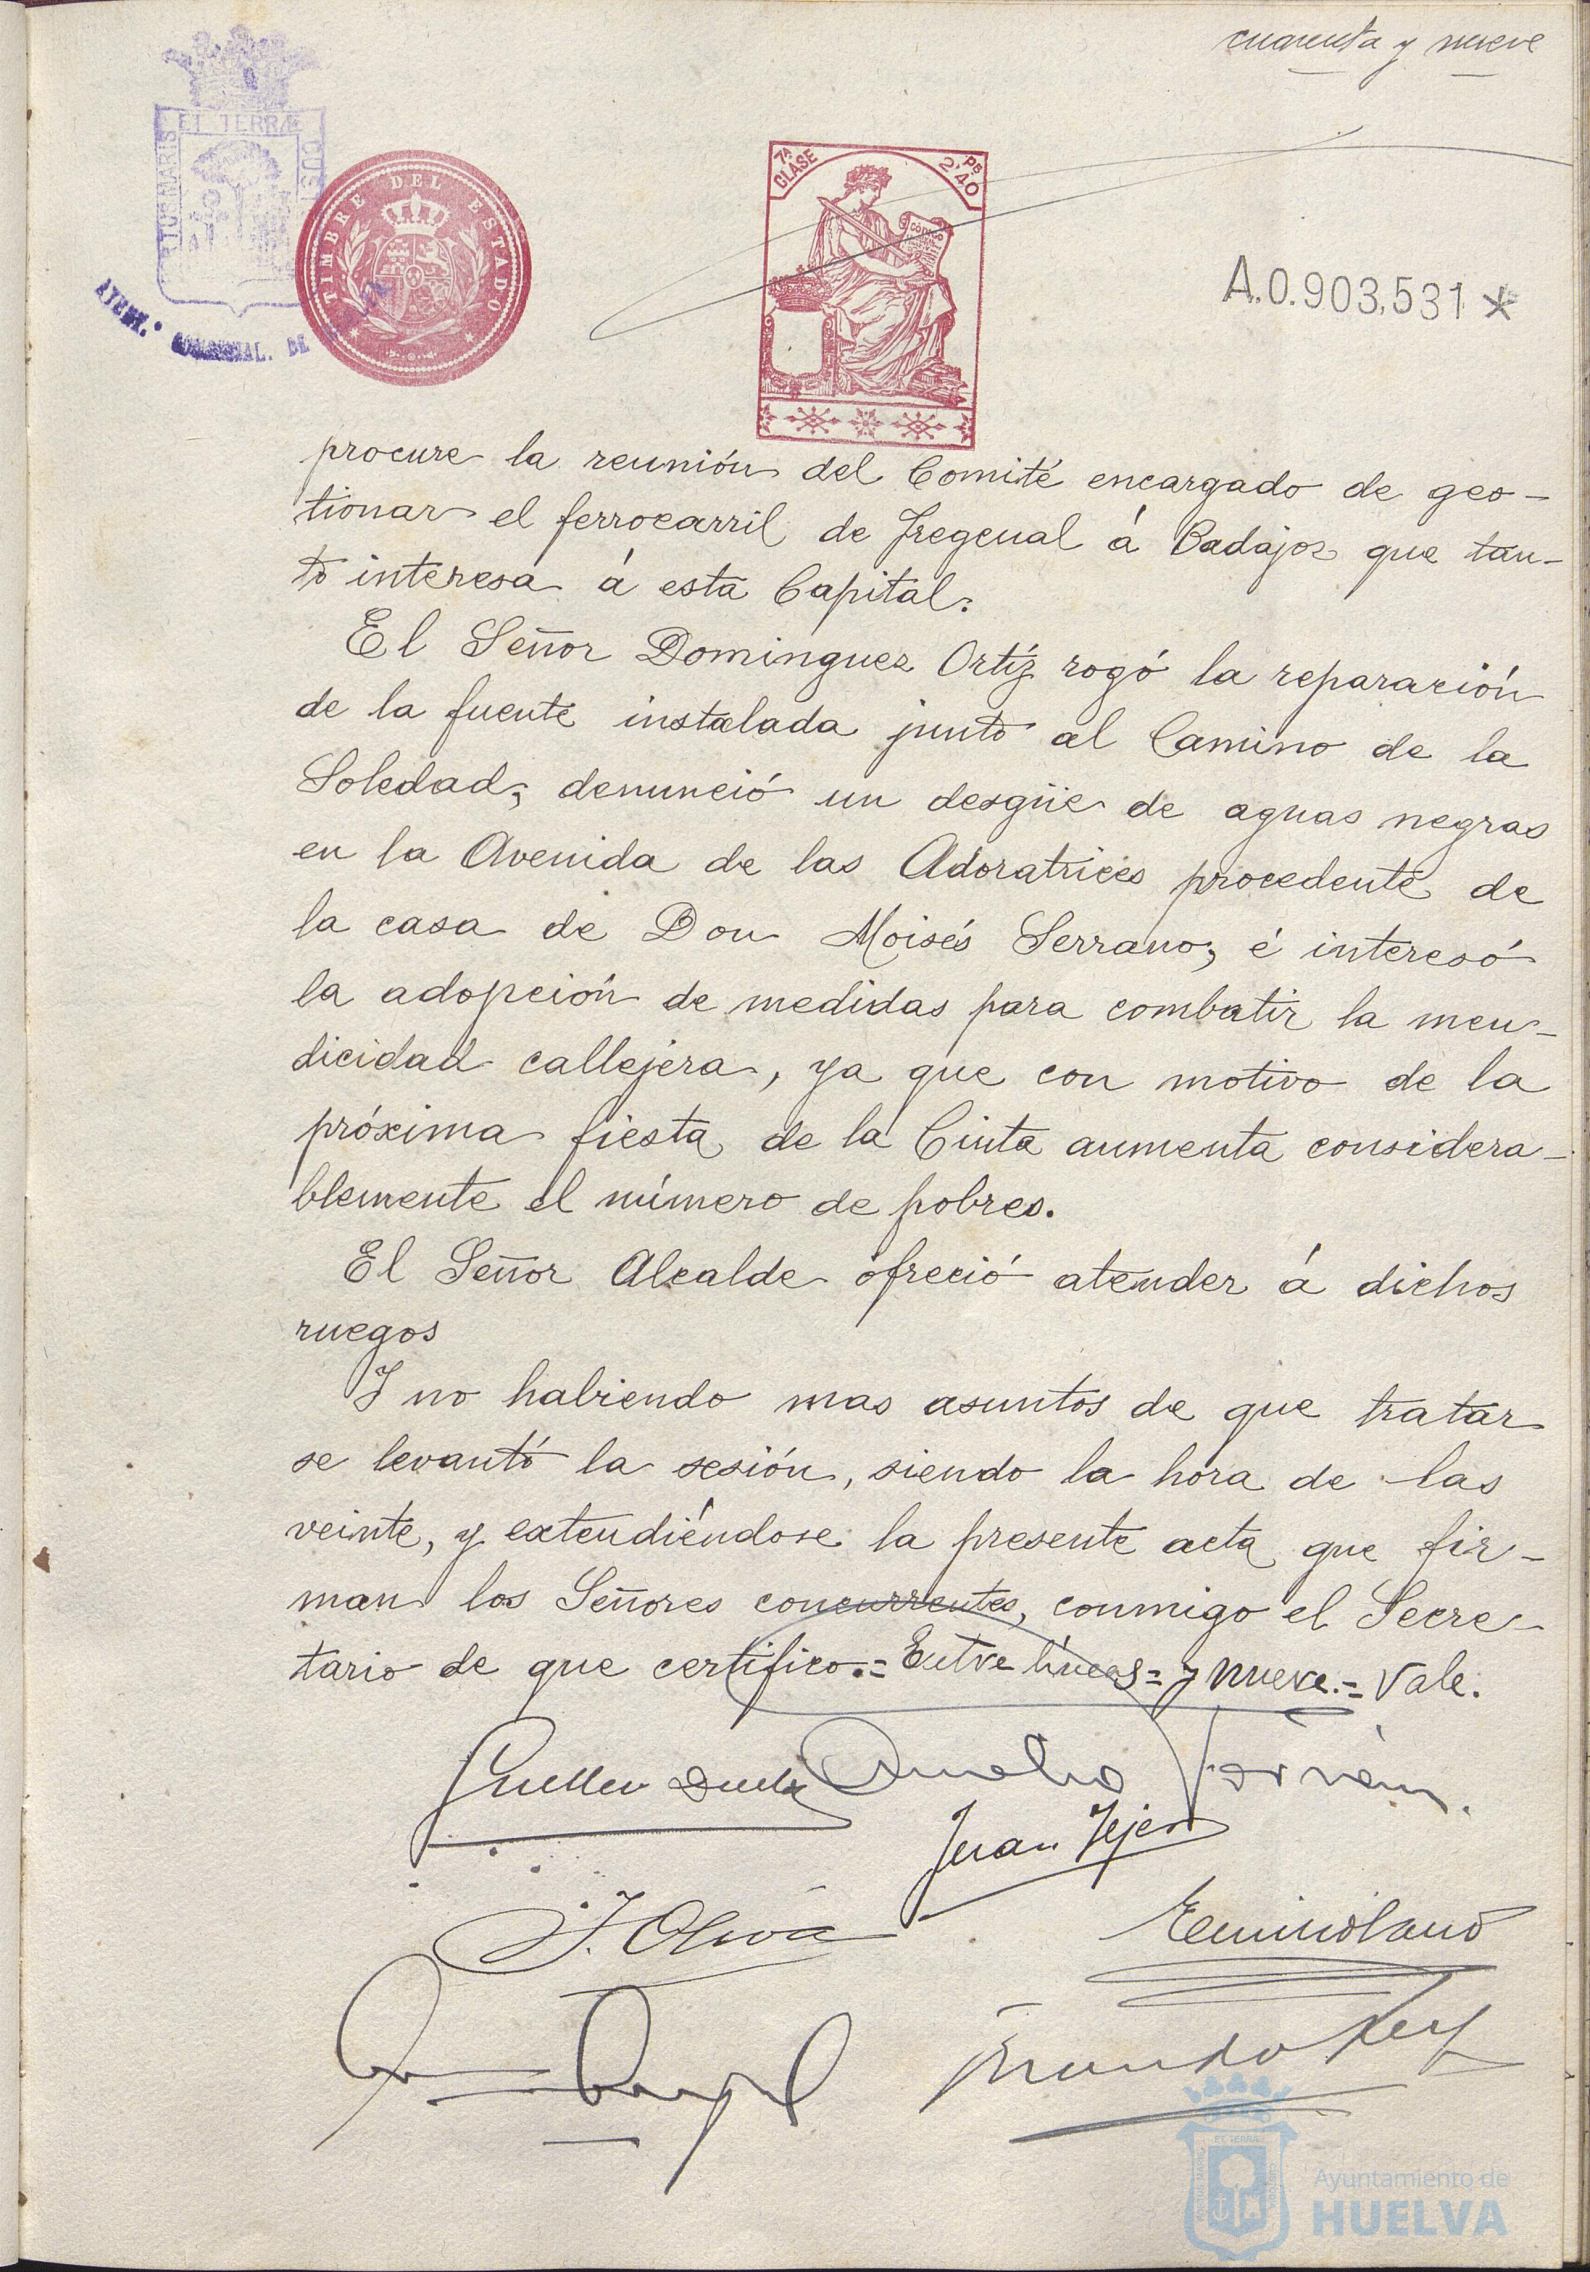 cuarenta y nueve
ET TERRÆ
PORTUS MARIS
CUS
TIMBRE DEL ESTADO
7ª CLASE
2'40 Ps
CÓDIGO
A.0.903,531 *
AYUNT.
DE
procure la reunión del Comité encargado de ges-
tionar el ferrocarril de Fregenal á Badajoz que tan-
to interesa á esta Capital.
El Señor Dominguez Ortíz rogó la reparación
de la fuente instalada junto al Camino de la
Soledad; denunció un desgüe de aguas negras
en la Avenida de las Adoratrices procedente de
la casa de Don Moisés Serrano; é interesó
la adopción de medidas para combatir la men-
dicidad callejera, ya que con motivo de la
próxima fiesta de la Cinta aumenta considera-
blemente el número de pobres.
El Señor Alcalde ofreció atender á dichos
ruegos
Y no habiendo mas asuntos de que tratar
se levantó la sesión, siendo la hora de las
veinte, y extendiéndose la presente acta que fir-
man los Señores concurrentes, conmigo el Secre-
tario de que certifico.= Entre líneas= y nueve.= Vale.
Juan Tejero
J. Oliva
Ayuntamiento de
HUELVA